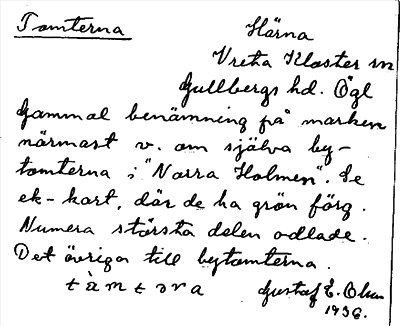 Tomterna
Härna
Vreta Kloster sn
Gullbergs hd. Ögl
Gammal benämning på marken
närmast v. om själva by-
tomterna i "Norra Holmen". Se
ek-kart, där de ha grön färg.
Numera största delen odlade.
Det övriga till bytomterna.
tàmtəṇa
Gustaf E. Olsen
1936.